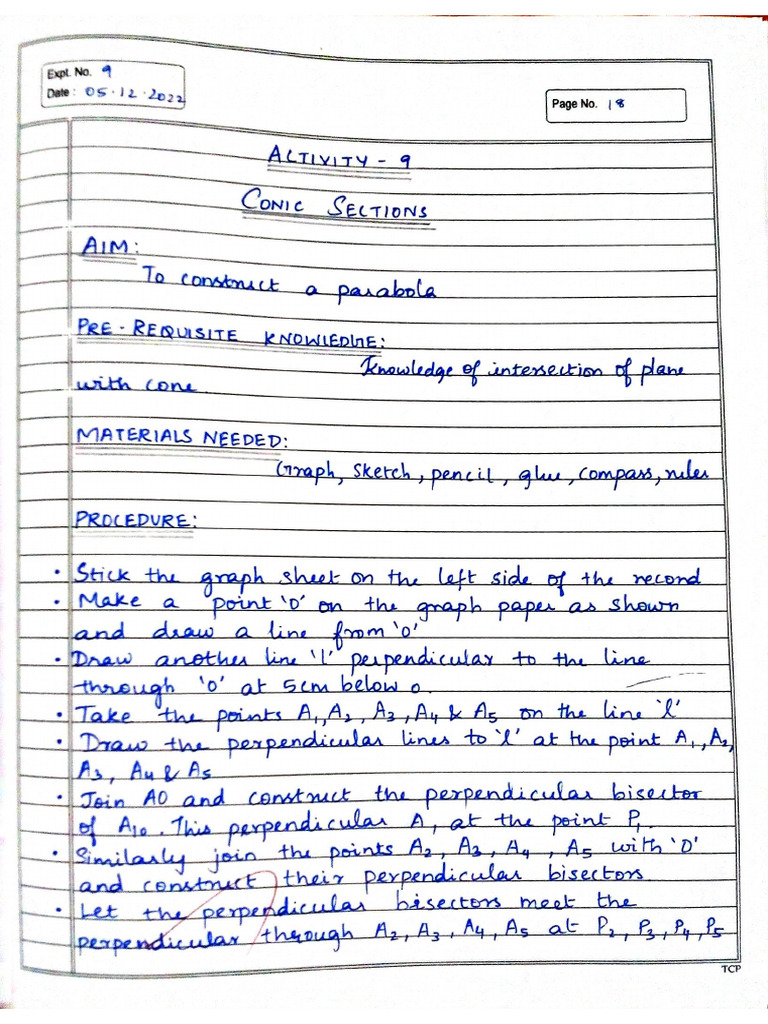 Expt. No. 9
Date : 05.12.2022
Page No. 18
ACTIVITY - 9
CONIC SECTIONS
AIM:
To construct a parabola
PRE-REQUISITE KNOWLEDGE:
Knowledge of intersection of plane
with cone.
MATERIALS NEEDED:
Graph, sketch, pencil, glue, compass, ruler
PROCEDURE:
• Stick the graph sheet on the left side of the record
• Make a point 'O' on the graph paper as shown
and draw a line from 'o'
• Draw another line 'l' perpendicular to the line
through 'o' at 5cm below o.
• Take the points A₁, A₂, A₃, A₄ & A₅ on the line 'l'
• Draw the perpendicular lines to 'l' at the point A₁, A₂,
A₃, A₄ & A₅
• Join AO and construct the perpendicular bisector
of A₁₀. This perpendicular A, at the point P₁.
• Similarly join the points A₂, A₃, A₄, A₅ with 'O'
and construct their perpendicular bisectors.
• Let the perpendicular bisectors meet the
perpendicular through A₂, A₃, A₄, A₅ at P₂, P₃, P₄, P₅
TCP